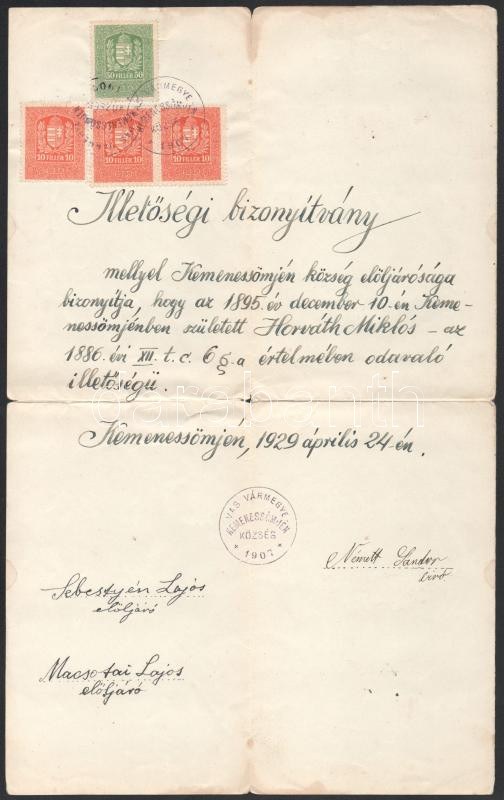 50 FILLÉR 50
10 FILLÉR 10
10 FILLÉR 10
10 FILLÉR 10
Illetőségi bizonyítvány
mellyel Kemenessömjén község elöljárósága
bizonyítja, hogy az 1895. év december 10.-én Keme-
nessömjénben született Horváth Miklós – az
1886. évi XII. t. c. 6 §-a értelmében odavaló
illetőségű.
darabanth
Kemenessömjén, 1929 április 24-én.
VAS VÁRMEGYE
KEMENESSÖMJÉN
KÖZSÉG
* 1907 *
Németh Sándor
bíró
Sebestyén Lajos
elöljáró
Macsotai Lajos
elöljáró